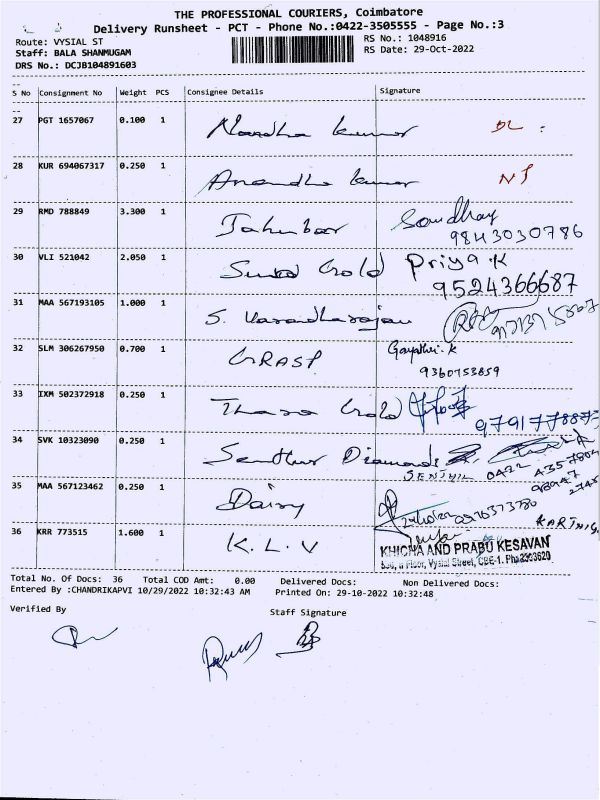 THE PROFESSIONAL COURIERS, Coimbatore
Delivery Runsheet - PCT - Phone No.:0422-3505555 - Page No.:3
Route: VYSIAL ST
RS No.: 1048916
Staff: BALA SHANMUGAM
RS Date: 29-Oct-2022
DRS No.: DCJB104891603
S No Consignment No Weight PCS Consignee Details Signature
27 PGT 1657067 0.100 1 Nandha kumar DL
28 KUR 694067317 0.250 1 Anandha kumar NS
29 RMD 788849 3.300 1
9843030786
30 VLI 521042 2.050 1 Gold Priya.K
9524366687
31 MAA 567193105 1.000 1 S. Varadharajan
32 SLM 306267950 0.700 1 GRASP Gayathri.K
9360753859
33 IXM 502372918 0.250 1 Gold
34 SVK 10323090 0.250 1 Senthur Diamonds
SENTHIL 0422 4357804
35 MAA 567123462 0.250 1 Daisy
36 KRR 773515 1.600 1 K.L.V
KHICHA AND PRABU KESAVAN
Floor, Vysial Street, CBE-1.
Total No. Of Docs: 36 Total COD Amt: 0.00 Delivered Docs: Non Delivered Docs:
Entered By :CHANDRIKAPVI 10/29/2022 10:32:43 AM Printed On: 29-10-2022 10:32:48
Verified By Staff Signature